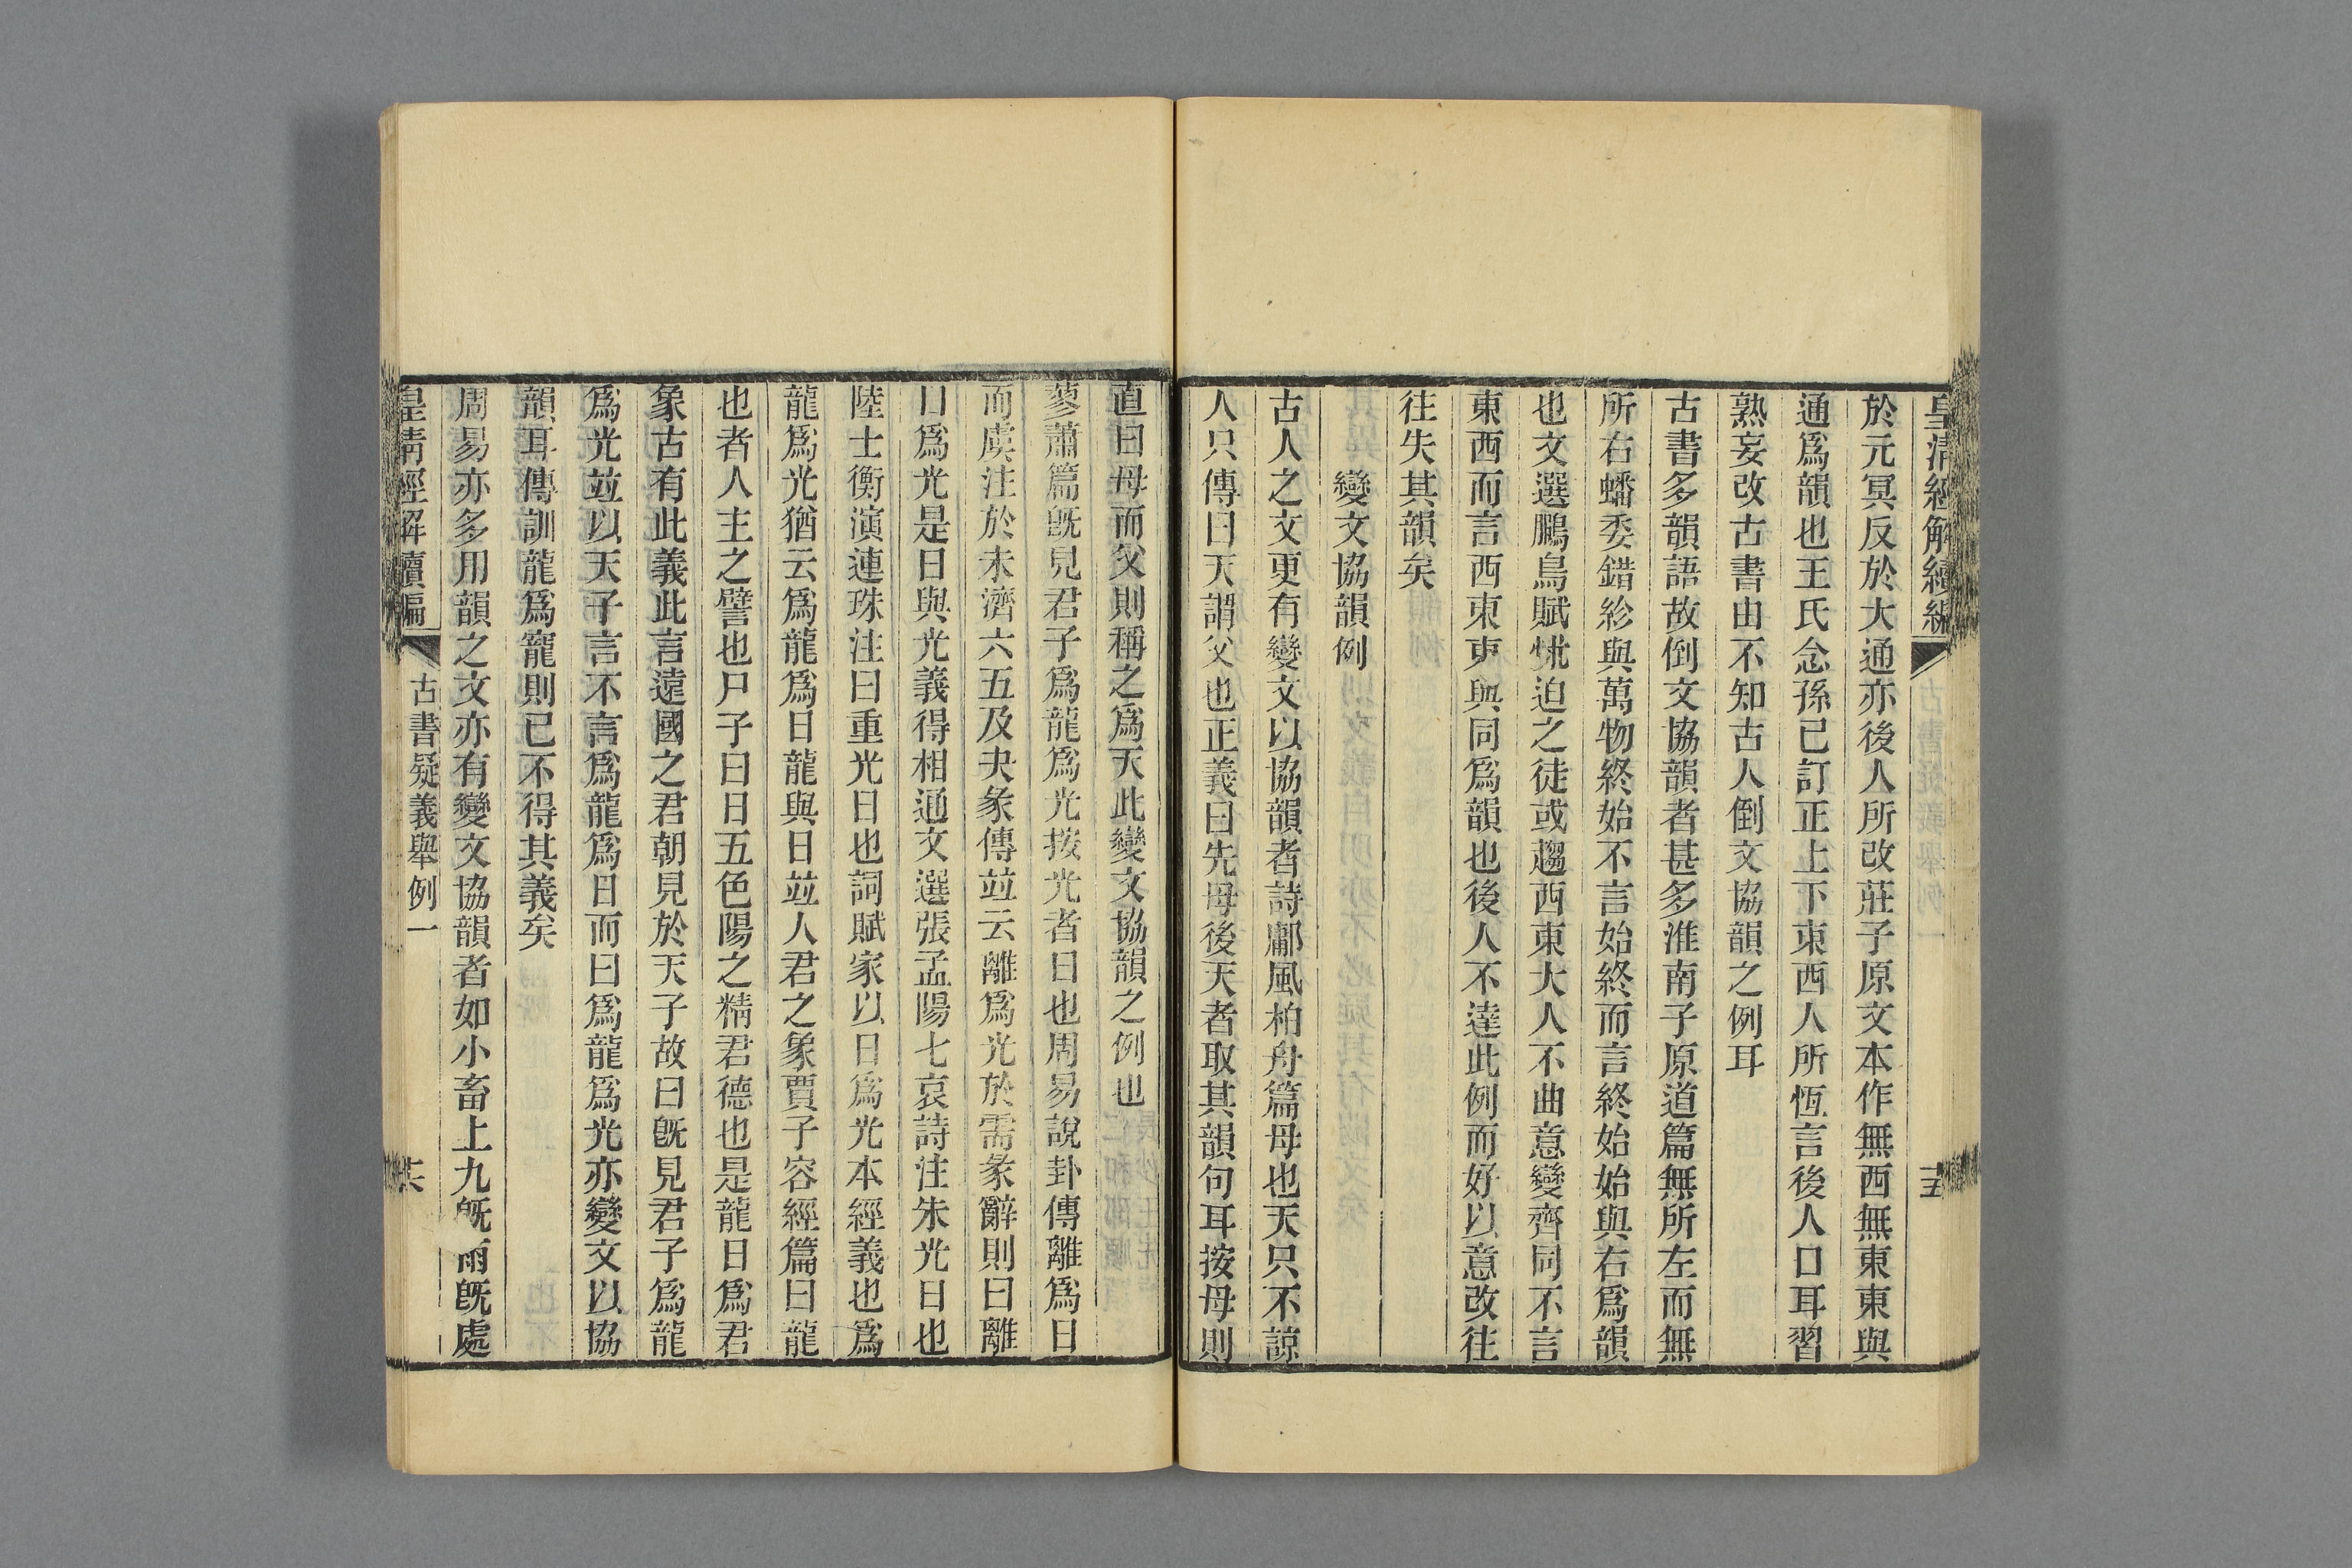 皇清經解續編
十五
於元冥反於大通亦後人所改莊子原文本作無西無東東與
通爲韻也王氏念孫已訂正上下東西人所恆言後人口耳習
熟妄改古書由不知古人倒文協韻之例耳
古書多韻語故倒文協韻者甚多淮南子原道篇無所左而無
所右蟠委錯紾與萬物終始不言始終而言終始始與右爲韻
也文選鵩鳥賦怵迫之徒或趨西東大人不曲意變齊同不言
東西而言西東東與同爲韻也後人不達此例而好以意改往
往失其韻矣
變文協韻例
古人之文更有變文以協韻者詩鄘風柏舟篇母也天只不諒
人只傳曰天謂父也正義曰先母後天者取其韻句耳按母則
直曰母而父則稱之爲天此變文協韻之例也
蓼蕭篇旣見君子爲龍爲光按光者日也周易說卦傳離爲日
而虞注於未濟六五及夬彖傳竝云離爲光於需彖辭則曰離
日爲光是日與光義得相通文選張孟陽七哀詩注朱光日也
陸士衡演連珠注曰重光日也詞賦家以日爲光本經義也爲
龍爲光猶云爲龍爲日龍與日竝人君之象賈子容經篇曰龍
也者人主之譬也尸子曰日五色陽之精君德也是龍日爲君
象古有此義此言遠國之君朝見於天子故曰旣見君子爲龍
爲光竝以天子言不言爲龍爲日而曰爲龍爲光亦變文以協
韻耳傳訓龍爲寵則已不得其義矣
周易亦多用韻之文亦有變文協韻者如小畜上九旣雨旣處
皇清經解續編
古書疑義舉例一
十六